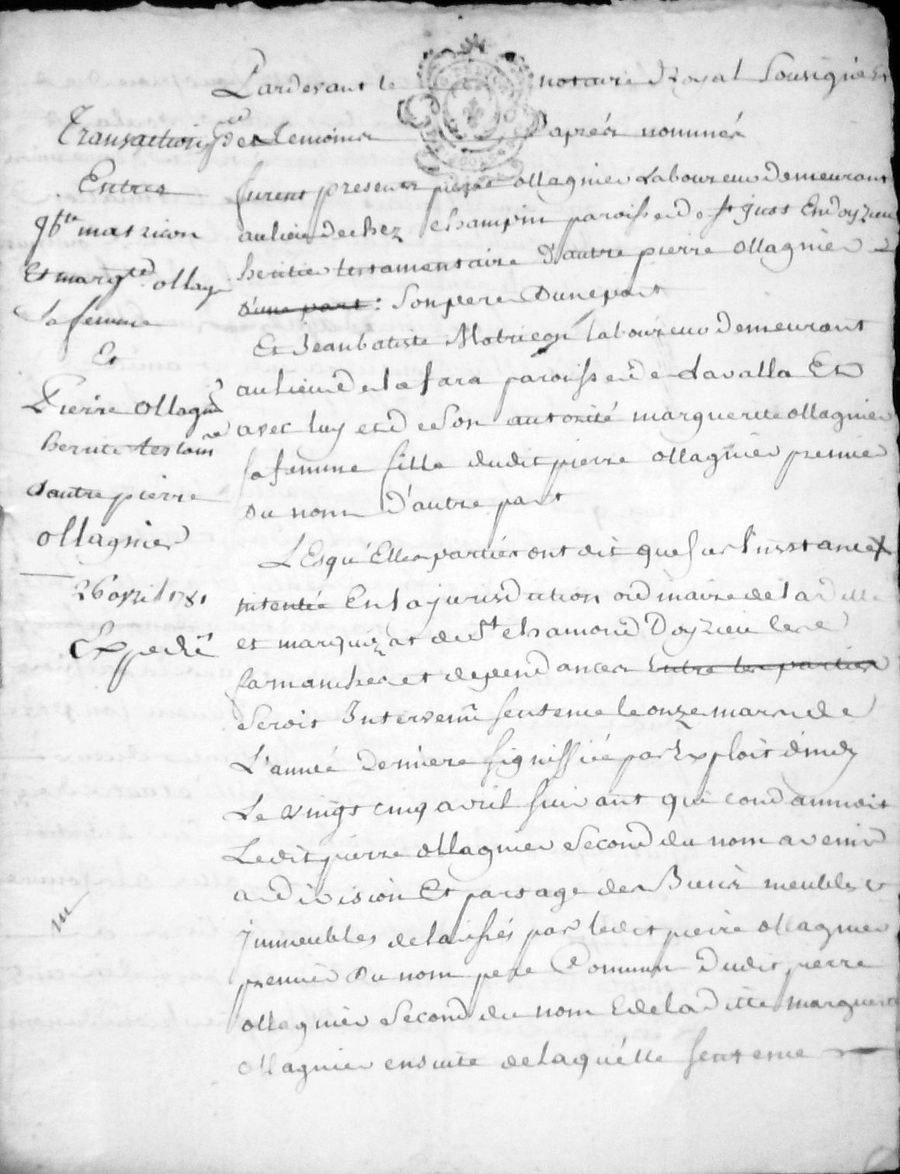 Pardevant le notaire Royal Sousigné Et
des temoins après nommés
furent presens pierre ollagnier Laboureur demeurant
au lieu de chez Champin paroisse de st Just En doyzieu
heritier testamentaire d'autre pierre ollagnier
d'une part : Son pere D'une part
Et Jean batiste Matricon laboureur demeurant
au lieu de la fara paroisse de Lavalla Et
avec luy et de Son autorité marguerite ollagnier
sa femme fille dudit pierre ollagnier premier
du nom D'autre part
LEsquElles parties ont dit que sur l'instance
intentée En la jurisdiction ordinaire de la ville
et marquizat de St chamond Doyzieu
et dependances Entre les parties
Seroit Intervenu sentence le onze mars de
L'année derniere signiffiée par Exploit
Le vingt cinq avril suivant qui condamnoit
Ledit pierre ollagnier Second du nom a venir
a division Et partage des Biens meubles et
Immeubles delaissés par ledit pierre ollagnier
premier du nom pere Commun dudit pierre
ollagnier Second du nom Et de laditte marguerite
ollagnier ensuite de laquelle sentence
Transaction
Entre
jbte matricon
Et margte ollag
sa femme
Et
Pierre Ollagnr
heritr testamre
d'autre pierre
ollagnier
26 avril 1781
Expedié